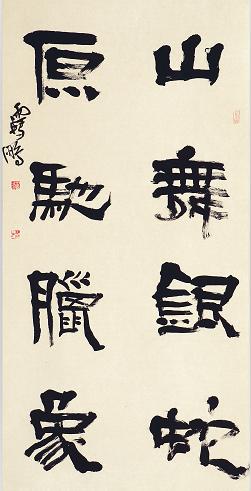 山舞銀蛇
原馳臘象